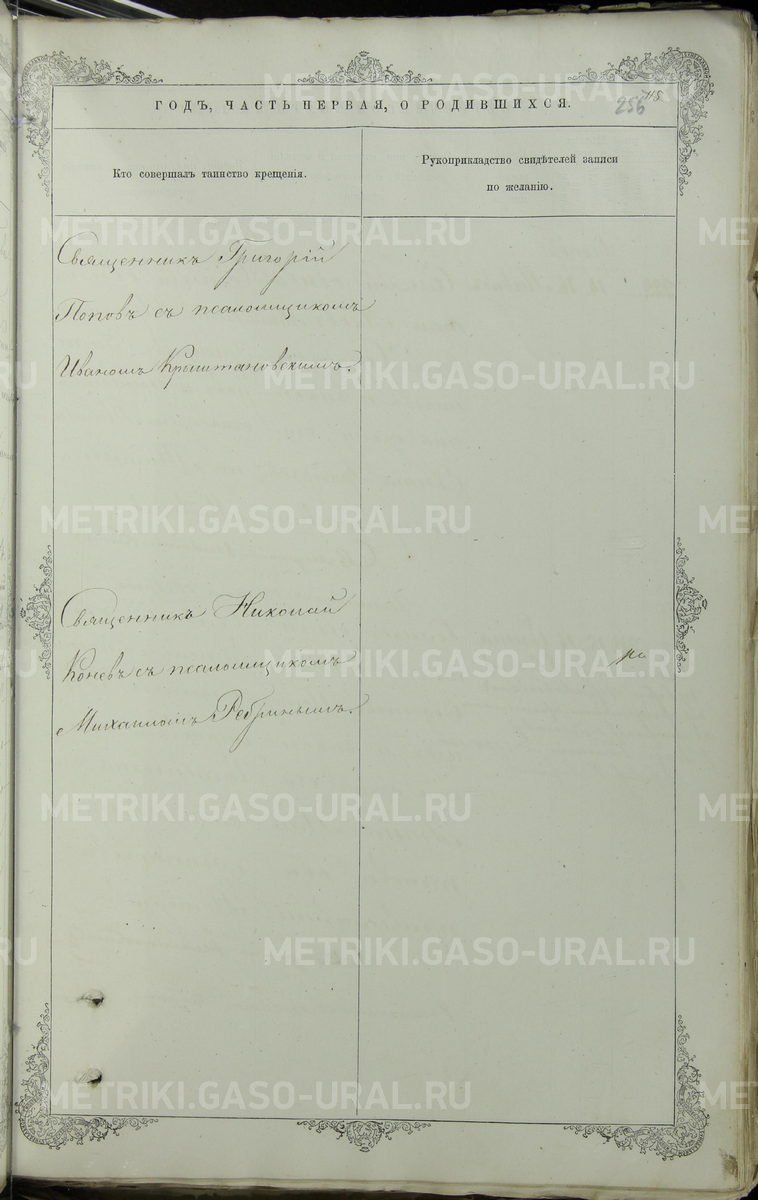 ГОДЪ, ЧАСТЬ ПЕРВАЯ, О РОДИВШИХСЯ.
256
118
Кто совершалъ таинство крещенія.
Рукоприкладство свидѣтелей записи
по желанію.
Священникъ Григорій
Поповъ съ псаломщикомъ
Иваномъ Крыштановскимъ.
Священникъ Николай
Коневъ съ псаломщикомъ
Михаиломъ Ребринымъ.
METRIKI.GASO-URAL.RU